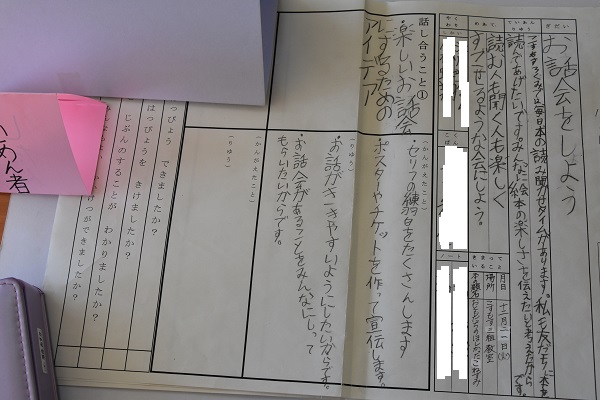 ぎだい
お話会をしよう
ていあん
りゆう
毎日本の読み聞かせタイムがあります。私も友だちに本を
読んであげたいです。みんなに絵本の楽しさを伝えたいと考えたからです。
めあて
読む人も聞く人も楽しく
すごせるような会にしよう。
やく
わり
しかい
こく
ばん
ノート
きまって
いること
月日
十二月二一日(火)
場所
話し合うこと①
・楽しいお話会
にするための
アイデア
(かんがえたこと)
・セリフの練習をたくさんします
ポスターやチケットを作って宣伝します。
(りゆう)
・お話がききやすいようにしたいからです。
・お話会があることをみんなにしって
もらいたいからです。
(かんがえたこと)
(りゆう)
っぴょう できましたか?
はっぴょうを きけましたか?
じぶんのすることが わかりましたか?
けつができましたか?
あん者